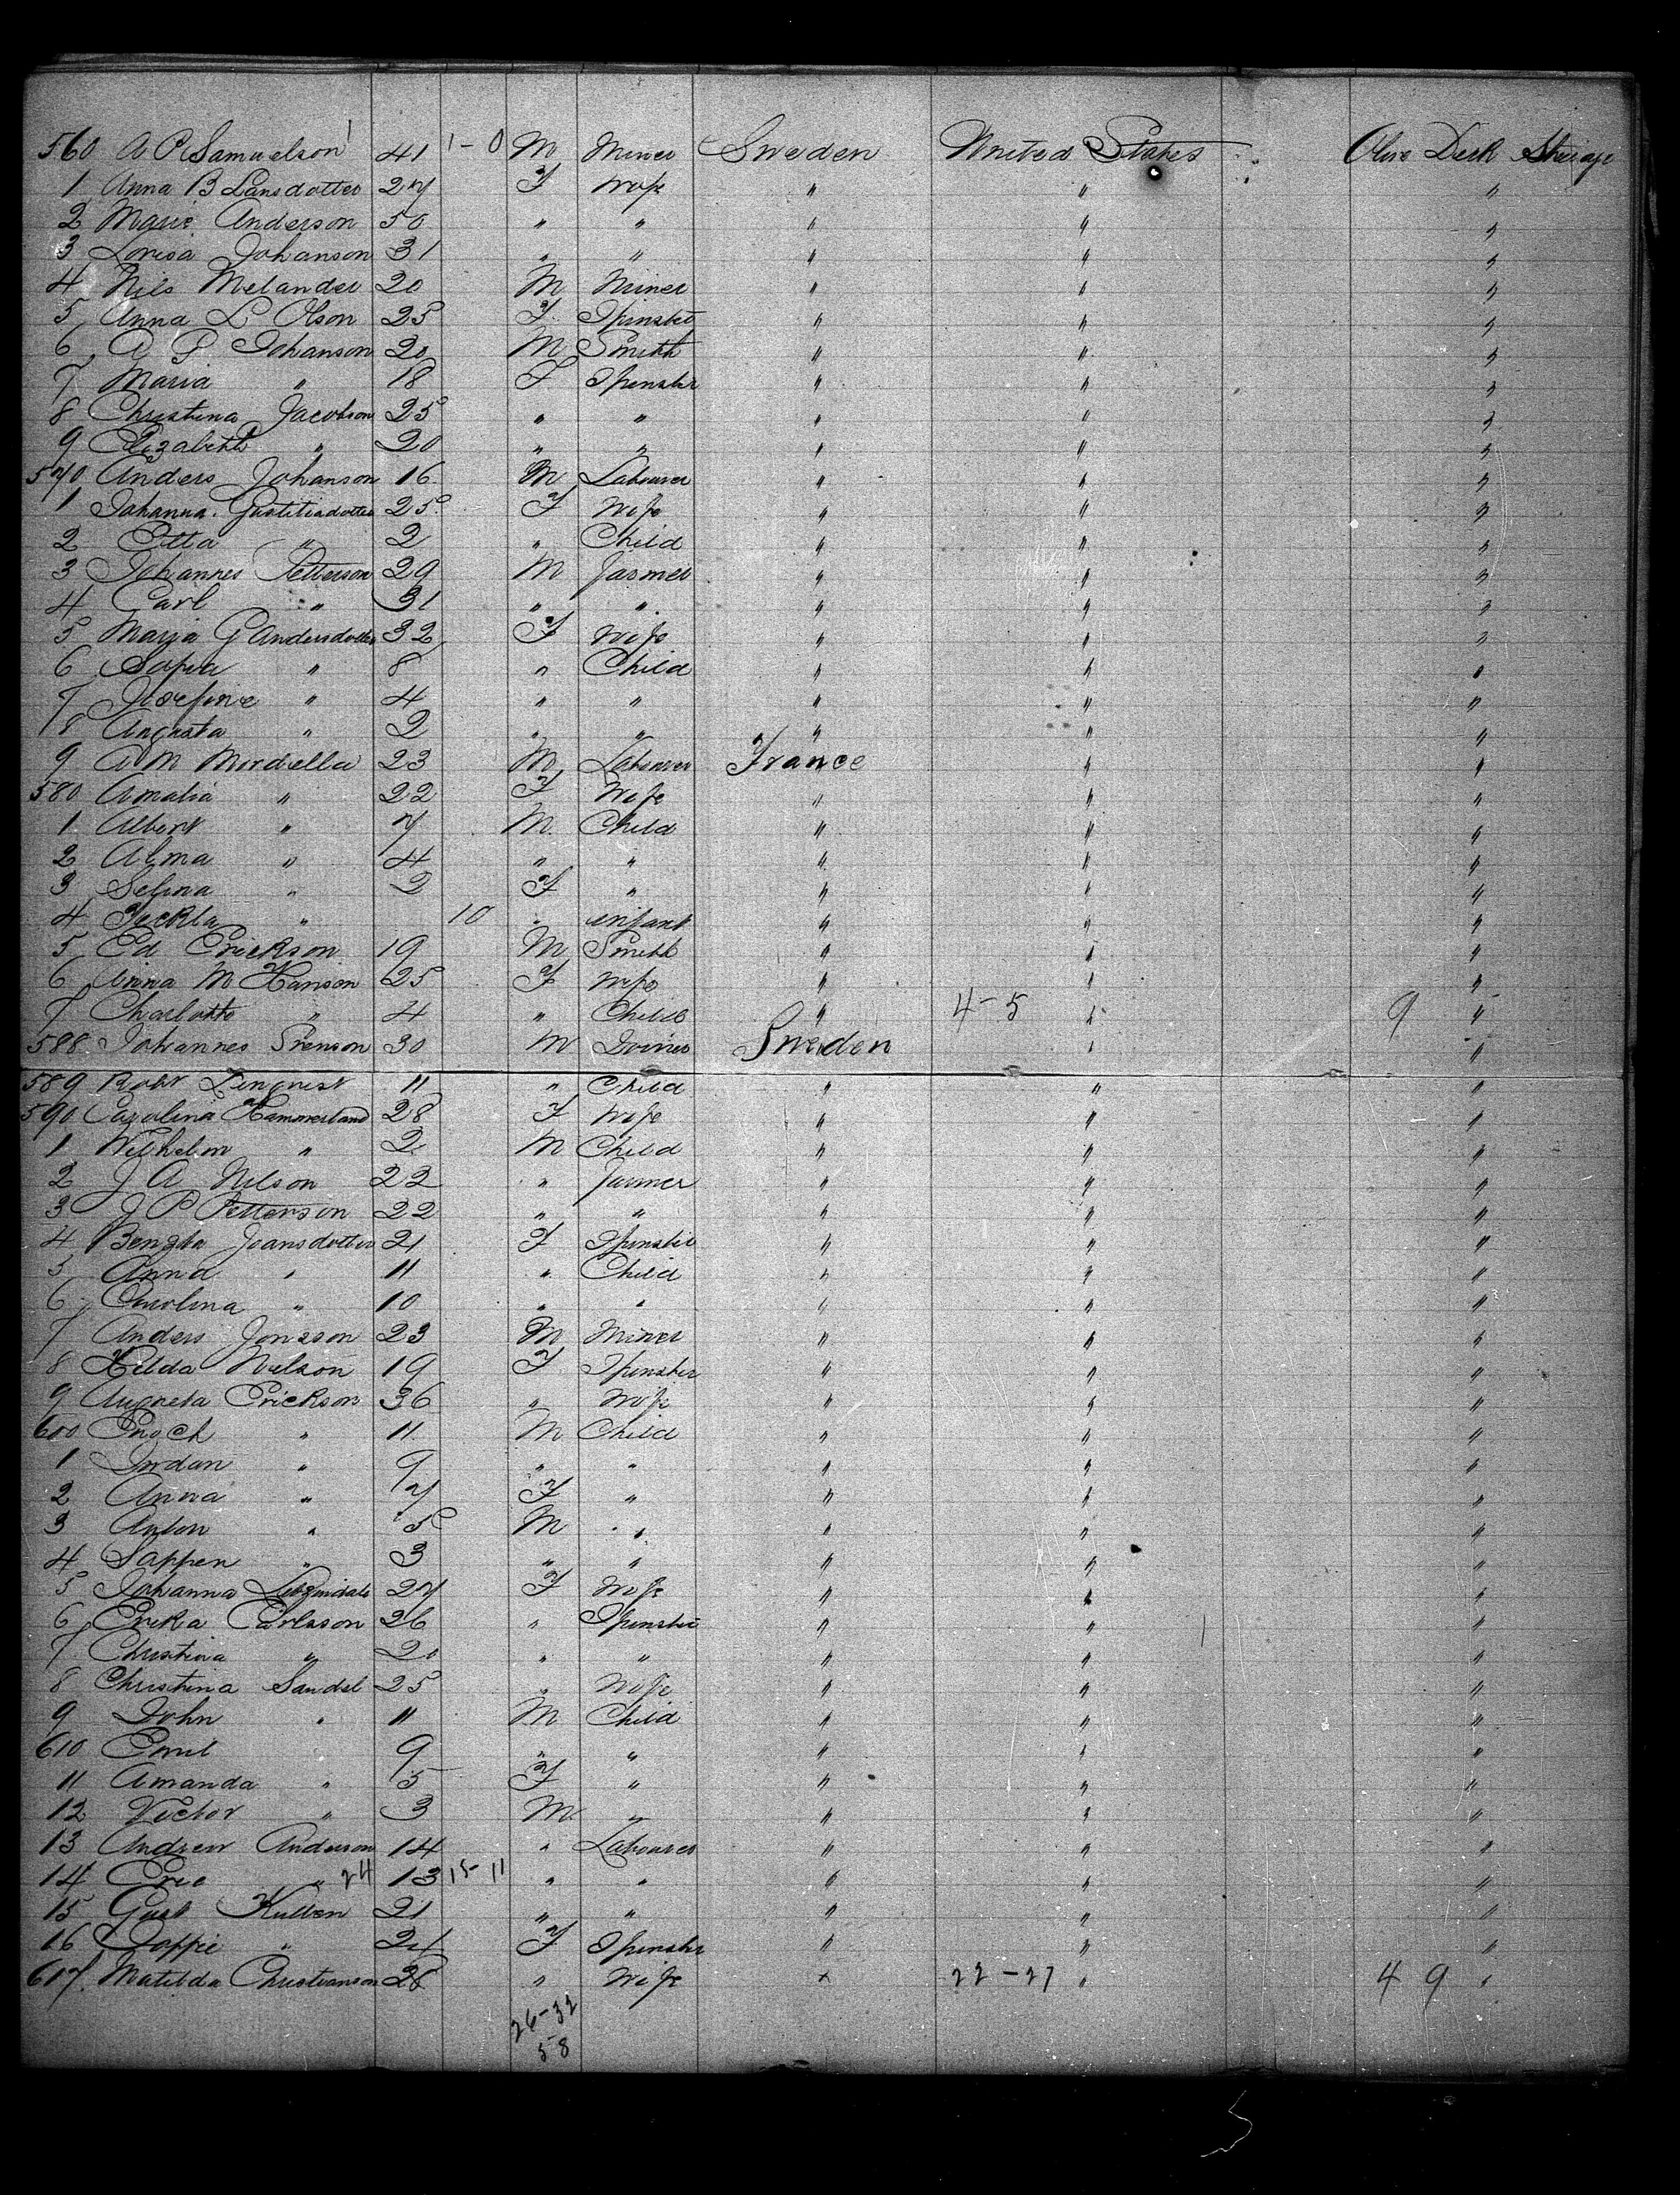 560 A P Samuelson 41 1-0 M Miner Sweden United States Olive Deck Steerage
1 Anna B Larsdotter 27 F Wife " " "
2 Marie Anderson 50 " " " " "
3 Lovisa Johanson 31 " " " " "
4 Nils Melander 20 M Miner " " "
5 Anna L Olson 25 F Spinster " " "
6 A P Johanson 20 M Smith " " "
7 Maria " 18 F Spinster " " "
8 Christina Jacobson 25 " " " " "
9 Elizabeth " 20 " " " " "
570 Anders Johanson 16 M Labourer " " "
1 Johanna 25 F Wife " " "
2 Etta " 2 " Child " " "
3 Johannes Petterson 29 M Farmer " " "
4 Carl " 31 " " " " "
5 Maria G Andersdotter 32 F Wife " " "
6 Sofia " 8 " Child " " "
7 Josefine " 4 " " " " "
8 Augusta " 2 " " " " "
9 A M Mordella 23 M Labourer France " "
580 Amalia " 22 F Wife " " "
1 Albert " 7 M Child " " "
2 Alma " 4 " " " " "
3 Selina " 2 F " " " "
4 Teckla " 10 " infant " " "
5 Ed Erickson 19 M Smith " " "
6 Anna M Hanson 25 F Wife " " "
7 Charlotte " 4 " Child " 4-5 " 9 "
588 Johannes Svenson 30 M Joiner Sweden " "
589 Robt Lenquist 11 " Child " " "
590 Carolina Hammerland 28 F Wife " " "
1 Wilhelm " 2 M Child " " "
2 J A Nilson 22 " Farmer " " "
3 J P Petterson 22 " " " " "
4 Bengta Joansdotter 21 F Spinster " " "
5 Anna " 11 " Child " " "
6 Carolina " 10 " " " " "
7 Anders Jonsson 23 M Miner " " "
8 Hilda Nelson 19 F Spinster " " "
9 Augneta Erickson 36 " Wife " " "
600 Enoch " 11 M Child " " "
1 Jordan " 9 " " " " "
2 Anna " 7 F " " " "
3 Anton " 5 M " " " "
4 Sappen " 3 " " " " "
5 Johanna 27 F Wife " " "
6 Erika Carlsson 26 " Spinster " " "
7 Christina " 20 " " " " "
8 Christina Sandel 25 " Wife " " "
9 John " 11 M Child " " "
610 Emil 9 " " " " "
11 Amanda " 5 F " " " "
12 Victor " 3 M " " " "
13 Andrew Anderson 14 " Labourer " " "
14 Eric " 24 13 15-11 " " " " "
15 Gust Kullen 21 " " " " "
16 Soppie " 21 F Spinster " " "
617. Matilda Christianson 28 " Wife " 22-27 " 49 "
26-32
58